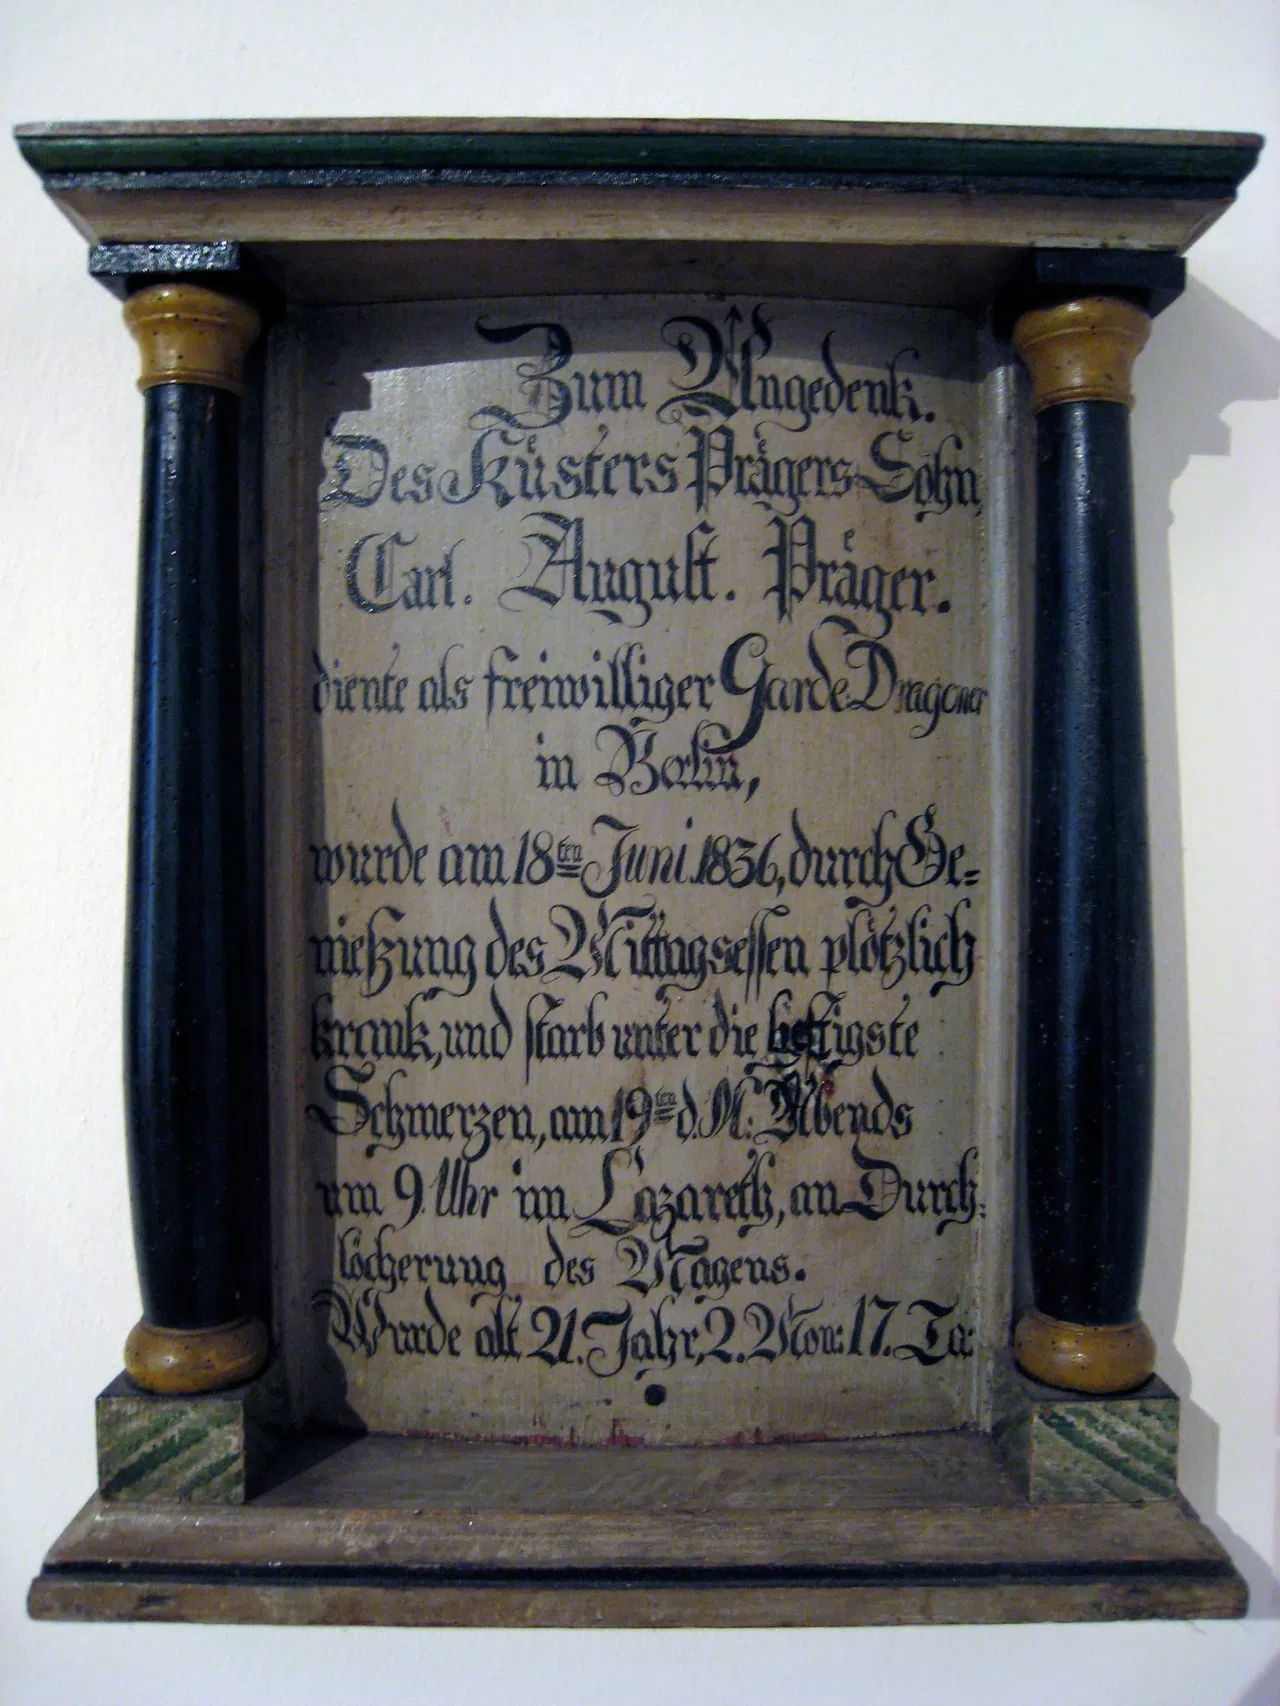 Zum Angedenk.
Des Küsters Prägers Sohn,
Carl. August. Präger.
diente als freiwilliger Garde Dragoner
in Berlin,
wurde am 18ten Juni 1836, durch Ge=
nießung des Mittagsessen plötzlich
krank, und starb unter die heftigste
Schmerzen, am 19ten d. M: Abends
um 9. Uhr im Lazareth, an Durch:
löcherung des Magens.
Wurde alt 21. Jahr, 2. Mon: 17. Ta: